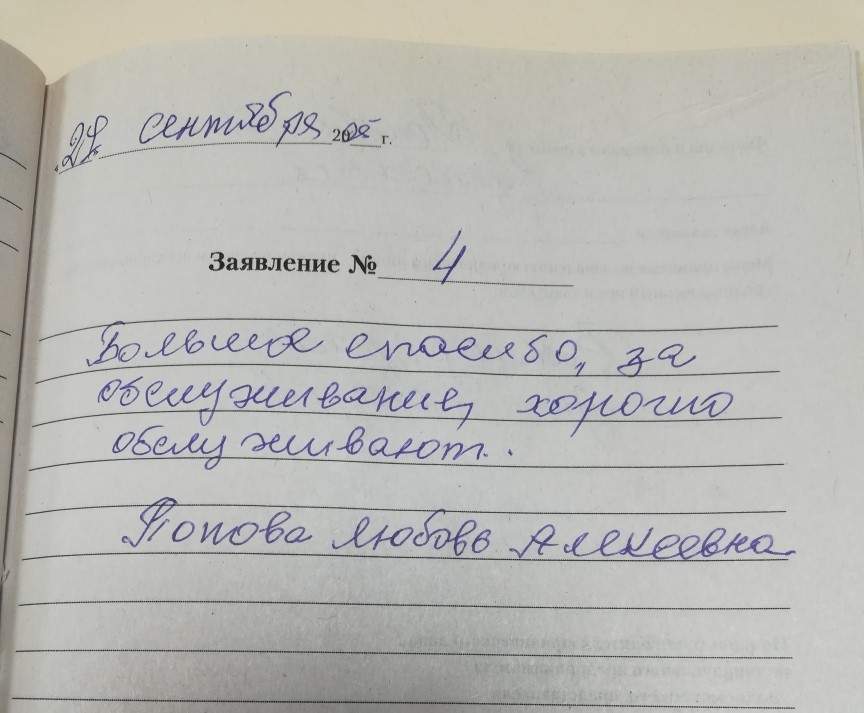 сентября 20 г.
Заявление № 4
Большое спасибо, за
обслуживание, хорошо
обслуживают.
Попова Любовь Алексеевна